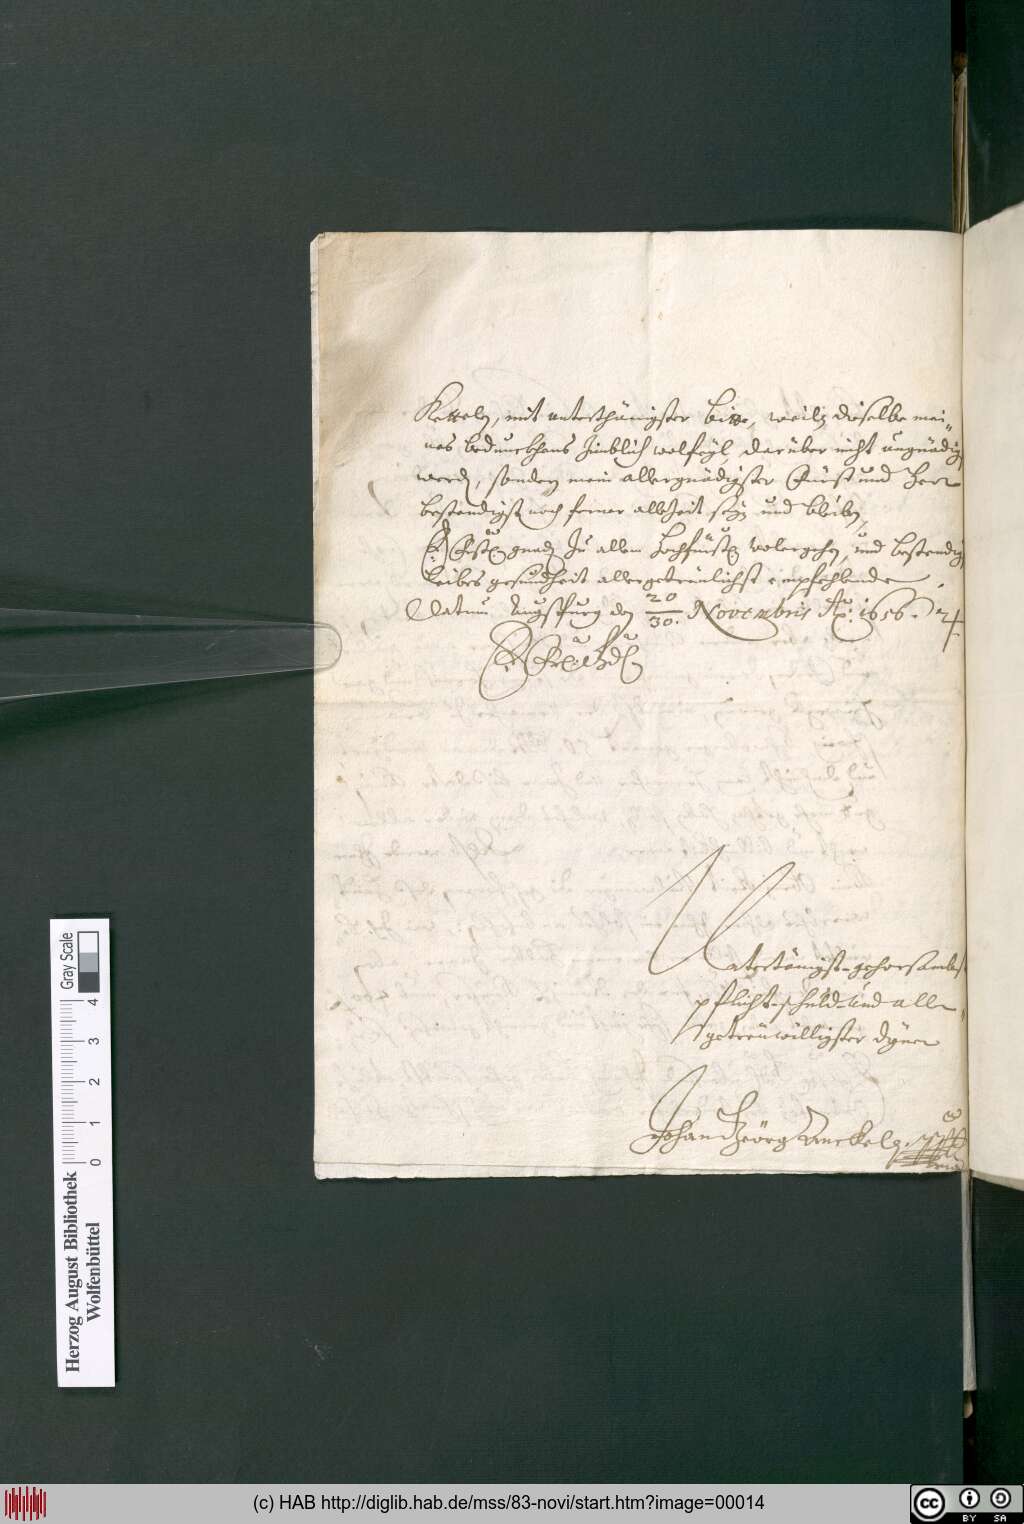 mit unterthänigster bitte, weiln dieselbe mei¬
nes bedunckhens zimblich wolfeyl, darüber nicht ungnädig
werd, sondern mein allergnädigster Fürst und Herr
bestendigst noch ferner allzeit sein und bleiben,
E. gnad zu allem wolergehen, und bestendig
leibes gesundheit allergetreulichst empfehlende
Datum Augspurg den 20/30. Novembris Ao: 1656.
E.
Untertänigst-gehorsambst
pflicht-schuld- und alle¬
getreuwilligster dyner
Johan Geörg Anckel
Gray Scale
4
3
2
1
0
Herzog August Bibliothek
Wolfenbüttel
(c) HAB http://diglib.hab.de/mss/83-novi/start.htm?image=00014
cc BY SA